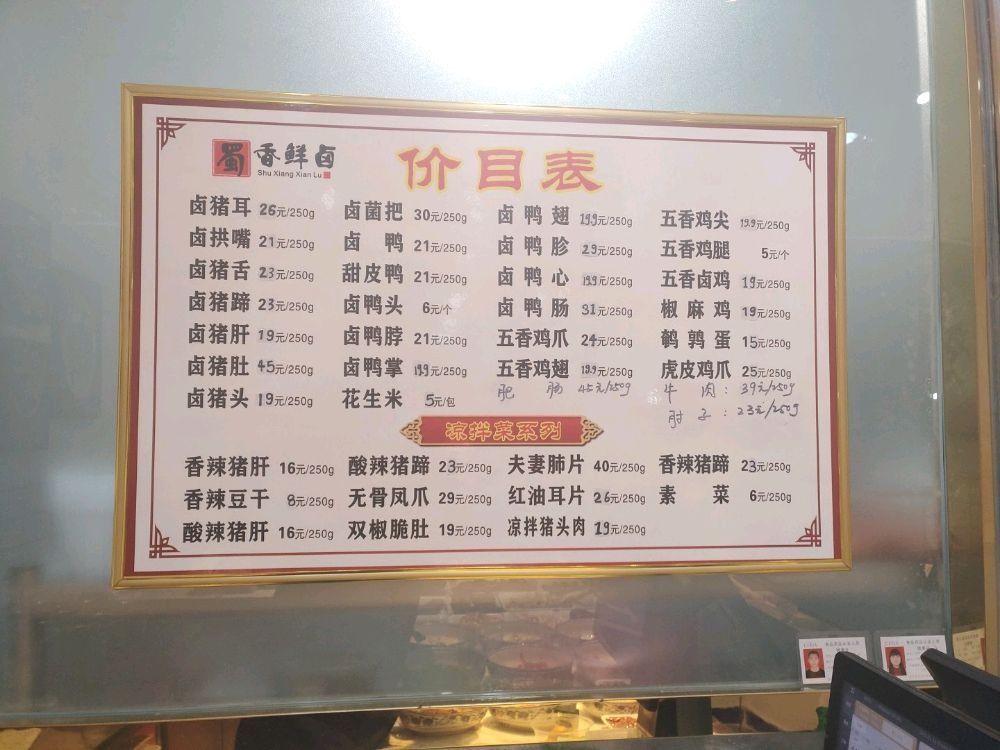 蜀香鲜卤 价目表
Shu Xiang Xian Lu
卤猪耳 26元/250g 卤菌把 30元/250g 卤鸭翅 19.9元/250g 五香鸡尖 19.9元/250g
卤拱嘴 21元/250g 卤鸭 21元/250g 卤鸭胗 29元/250g 五香鸡腿 5元/个
卤猪舌 23元/250g 甜皮鸭 21元/250g 卤鸭心 19.9元/250g 五香卤鸡 19元/250g
卤猪蹄 23元/250g 卤鸭头 6元/个 卤鸭肠 31元/250g 椒麻鸡 19元/250g
卤猪肝 19元/250g 卤鸭脖 21元/250g 五香鸡爪 24元/250g 鹌鹑蛋 15元/250g
卤猪肚 45元/250g 卤鸭掌 19.9元/250g 五香鸡翅 19.9元/250g 虎皮鸡爪 25元/250g
卤猪头 19元/250g 花生米 5元/包 肥肠 45元/250g 牛肉:39元/250g
肘子:23元/250g
凉拌菜系列
香辣猪肝 16元/250g 酸辣猪蹄 23元/250g 夫妻肺片 40元/250g 香辣猪蹄 23元/250g
香辣豆干 8元/250g 无骨凤爪 29元/250g 红油耳片 26元/250g 素菜 6元/250g
酸辣猪肝 16元/250g 双椒脆肚 19元/250g 凉拌猪头肉 19元/250g